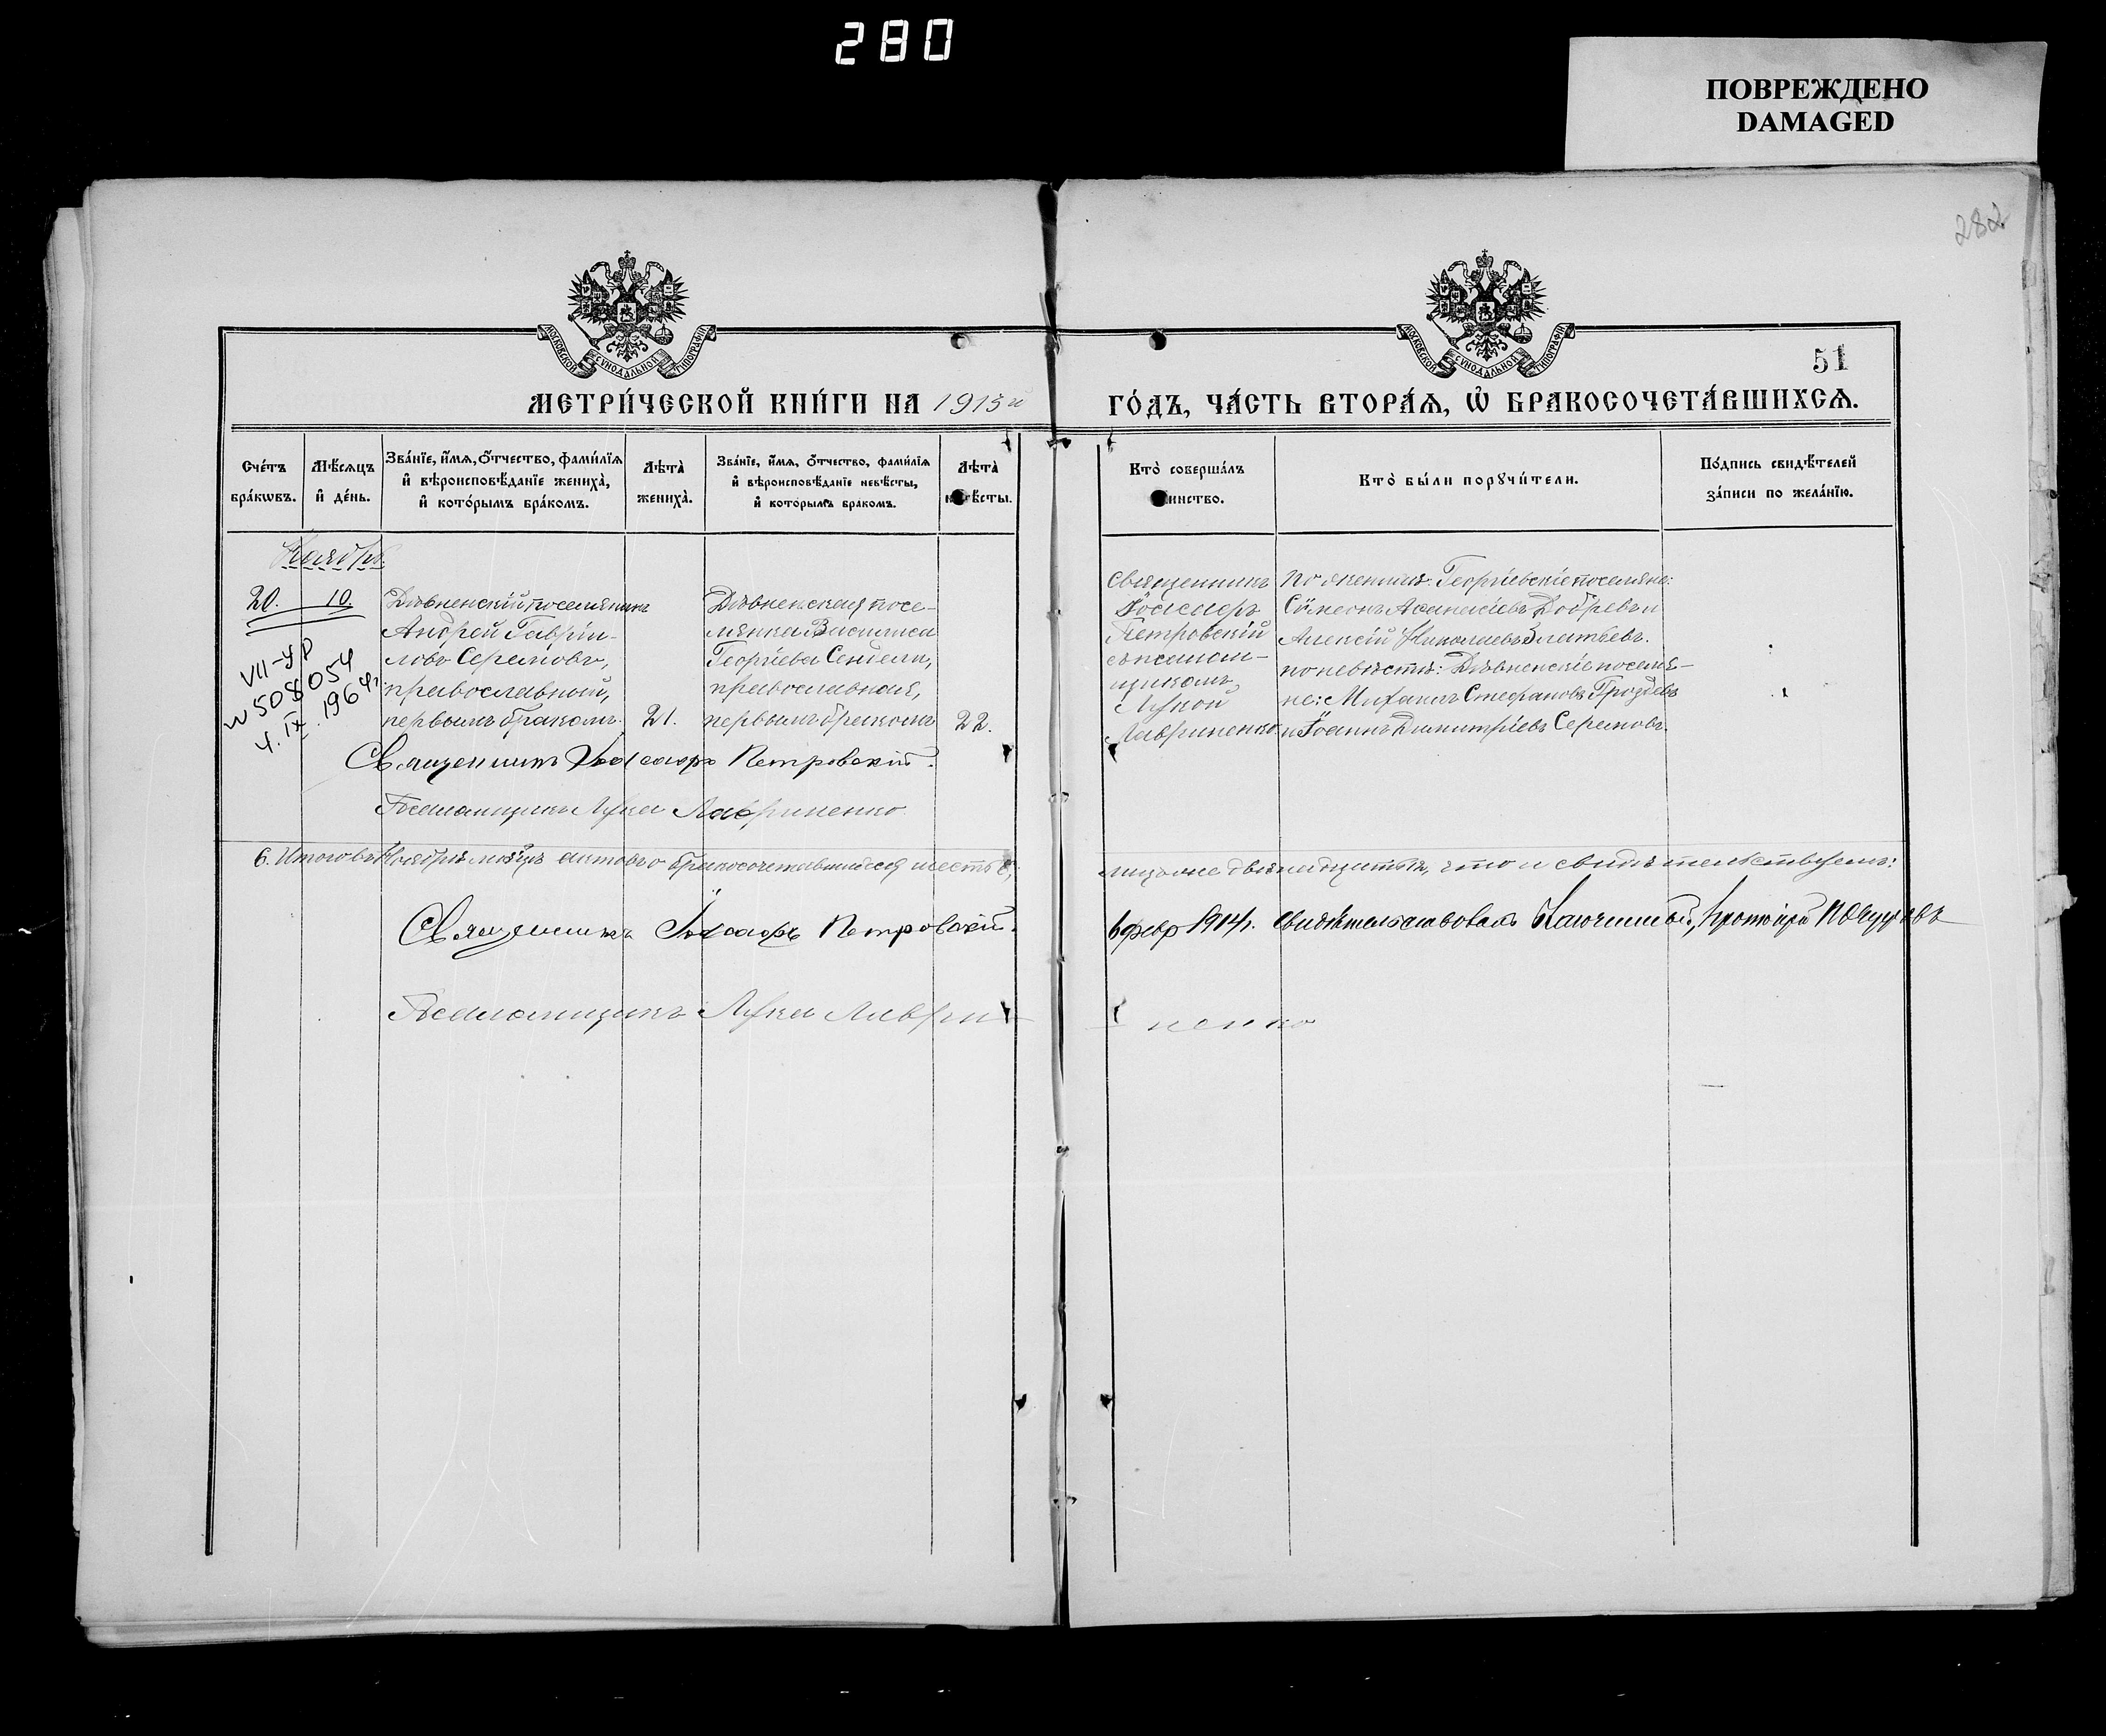 280
ПОВРЕЖДЕНО
DAMAGED
282
МОСКОВСКОЙ СѴНОДАЛЬНОЙ ТИПОГРАФІИ
МОСКОВСКОЙ СѴНОДАЛЬНОЙ ТИПОГРАФІИ
51
МЕТРИ́ЧЕСКОЙ КНИ́ГИ НА 1913й
ГО́ДЪ, ЧА́СТЬ ВТОРА́Ѧ, Ѡ҆ БРАКОСОЧЕТА́ВШИХСѦ.
Сче́тъ бра́кѡвъ.
Мѣ́сѧцъ и҆ де́нь.
Зва́нїе, и҆́мѧ, ѻ҆́тчество, фами́лїѧ
и҆ вѣроисповѣ́данїе жениха̀,
и҆ кото́рымъ бра́комъ.
Лѣта̀ жениха̀.
Зва́нїе, и҆́мѧ, ѻ҆́тчество, фами́лїѧ
и҆ вѣроисповѣ́данїе невѣ́сты,
и҆ кото́рымъ бракомъ.
Лѣта̀ невѣ́сты.
Кто̀ соверша́лъ
таинство.
Кто̀ бы́ли порꙋчи́тели.
По́дпись свидѣ́телей
за́писи по жела́нїю.
Ноябрь.
20. 10
VII-УР
№ 508054
4. IX. 1964г.
Дѣвненскій поселянинъ
Андрей Гаврі-
ловъ Серемовъ,
православный,
первымъ бракомъ.
21.
Дѣвненская посе-
лянка Василиса
Георгіева Сендели,
православная,
первымъ бракомъ
22.
Священникъ
Іоасафъ
Петровскій
съ псалом-
щикомъ
Лукой
Лавриненко
по женихѣ: Георгіевскіе поселяне:
Сѵмеонъ Аѳанасіевъ Добревъ и
Алексій Николаевъ Златьевъ.
по невѣстѣ: Дѣвненскіе поселя-
не: Михаилъ Стефановъ Гроздевъ
и Іоаннъ Димитріевъ Серемовъ.
Священникъ Іоасафъ Петровскій.
Псаломщикъ Лука Лавриненко.
6. Итого въ Ноябрѣ мѣсяцѣ актовъ о бракосочетавшихся шесть 6,
лицъ же двѣнадцать, что и свидѣтельствуемъ:
Священникъ Іоасафъ Петровскій.
6 февр 1914г. свидѣтельствовалъ Благочинный, Протоіерей
Псаломщикъ Лука Лаври-
ненко